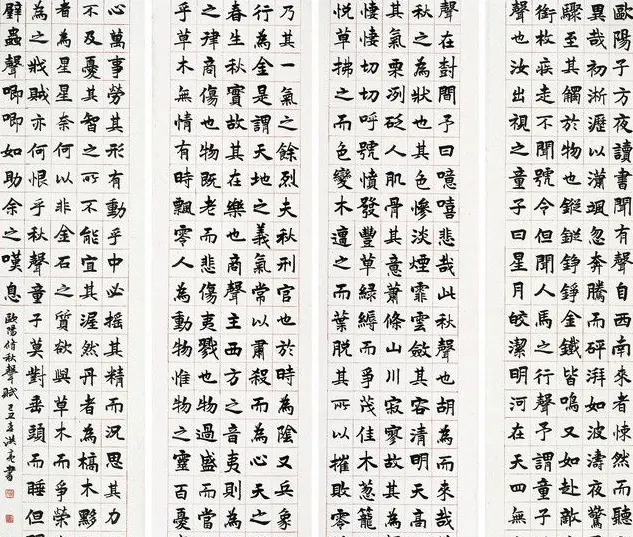 歐陽子方夜讀書聞有聲自西南來者悚然而聽
異哉初淅瀝以瀟颯忽奔騰而砰湃如波濤夜驚
驟至其觸於物也鏦鏦錚錚金鐵皆鳴又如赴敵
銜枚疾走不聞號令但聞人馬之行聲予謂童子
聲也汝出視之童子曰星月皎潔明河在天四無
聲在樹間予曰噫嘻悲哉此秋聲也胡為而來哉
秋之為狀也其色慘淡煙霏雲斂其容清明天高
其氣栗冽砭人肌骨其意蕭條山川寂寥故其為
悽悽切切呼號憤發豐草綠縟而爭茂佳木蔥籠
悅草拂之而色變木遭之而葉脫其所以摧敗零
乃其一氣之餘烈夫秋刑官也於時為陰又兵象
行為金是謂天地之義氣常以肅殺而為心天之
春生秋實故其在樂也商聲主西方之音夷則為
之律商傷也物既老而悲傷夷戮也物過盛而當
乎草木無情有時飄零人為動物惟物之靈百憂
心萬事勞其形有動乎中必搖其精而況思其力
不及憂其智之所不能宜其渥然丹者為槁木黟
者為星星奈何以非金石之質欲與草木而爭榮
為之戕賊亦何恨乎秋聲童子莫對垂頭而睡但
壁蟲聲唧唧如助余之嘆息
歐陽修秋聲賦己丑洪亮書